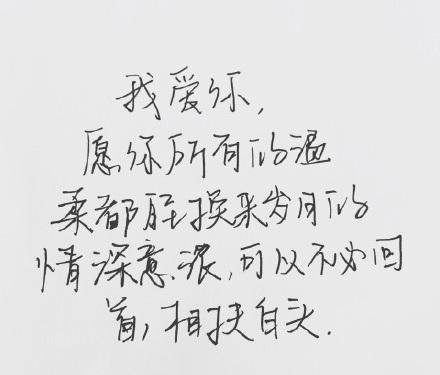 我爱你,
愿你所有的温
柔都能换来岁月的
情深意浓,可以不必回
首,相扶白头.